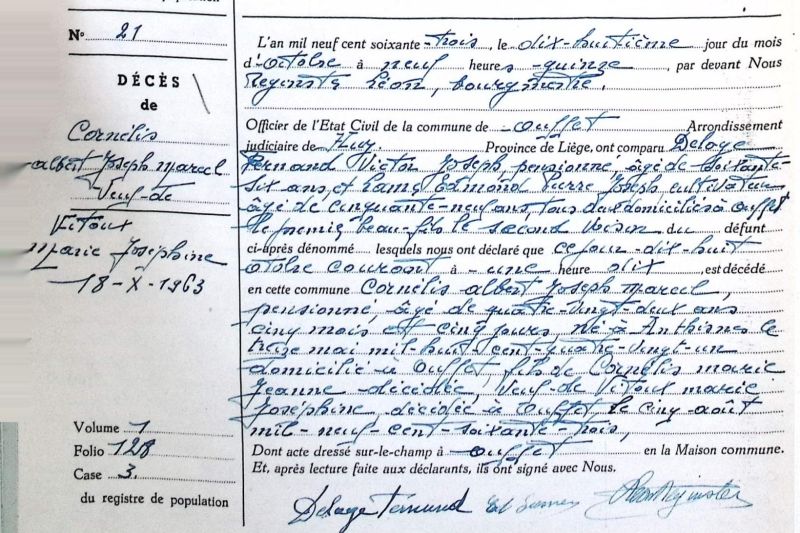 N° 21
DÉCÈS
de
Cornélis
Albert Joseph Marcel
Veuf de
Vitoux
Marie Joséphine
18-X-1963
Volume 1
Folio 128
Case 3.
du registre de population
L'an mil neuf cent soixante-trois, le dix-huitième jour du mois
d'octobre à neuf heures quinze, par devant Nous
Reginster Léon, bourgmestre.
Officier de l'Etat Civil de la commune de Ouffet Arrondissement
judiciaire de Huy. Province de Liège, ont comparu Deloge
Fernand Victor Joseph, pensionné, âgé de soixante-
six ans, et Edmond Pierre Joseph cultivateur
âgé de cinquante-neuf ans, tous deux domiciliés à Ouffet
le premier beau-fils le second voisin du défunt
ci-après dénommé lesquels nous ont déclaré que ce jour dix-huit
octobre courant à une heure dix, est décédé
en cette commune Cornélis Albert Joseph Marcel,
pensionné, âgé de quatre-vingt-deux ans
cinq mois et cinq jours, né à Anthisnes le
treize mai mil-huit-cent-quatre-vingt-un
domicilié à Ouffet, fils de Cornélis Marie
Jeanne décédée, Veuf de Vitoux Marie
Joséphine, décédée à Ouffet, le cinq août
mil-neuf-cent-soixante-trois,
Dont acte dressé sur-le-champ à Ouffet en la Maison commune.
Et, après lecture faite aux déclarants, ils ont signé avec Nous.
Deloge Fernand